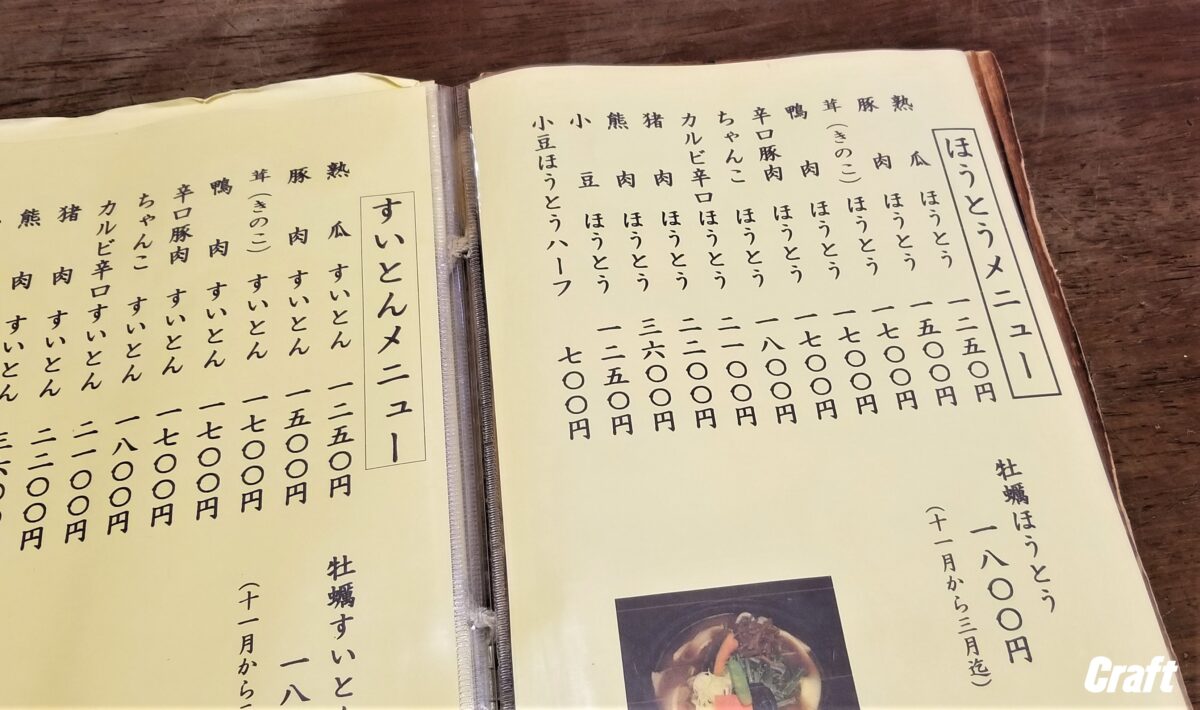 ほうとうメニュー
熟瓜ほうとう 一二五〇円
豚肉ほうとう 一五〇〇円
茸(きのこ)ほうとう 一七〇〇円
鴨肉ほうとう 一七〇〇円
辛口豚肉ほうとう 一七〇〇円
ちゃんこほうとう 一八〇〇円
カルビ辛口ほうとう 二一〇〇円
猪肉ほうとう 二二〇〇円
熊肉ほうとう 三六〇〇円
小豆ほうとう 一二五〇円
小豆ほうとうハーフ 七〇〇円
牡蠣ほうとう
一八〇〇円
(十一月から三月迄)
すいとんメニュー
熟瓜すいとん 一二五〇円
豚肉すいとん 一五〇〇円
茸(きのこ)すいとん 一七〇〇円
鴨肉すいとん 一七〇〇円
辛口豚肉すいとん 一七〇〇円
ちゃんこすいとん 一八〇〇円
カルビ辛口すいとん 二一〇〇円
猪肉すいとん 二二〇〇円
熊肉すいとん 三六〇〇
牡蠣すいと
一八
(十一月から
Craft